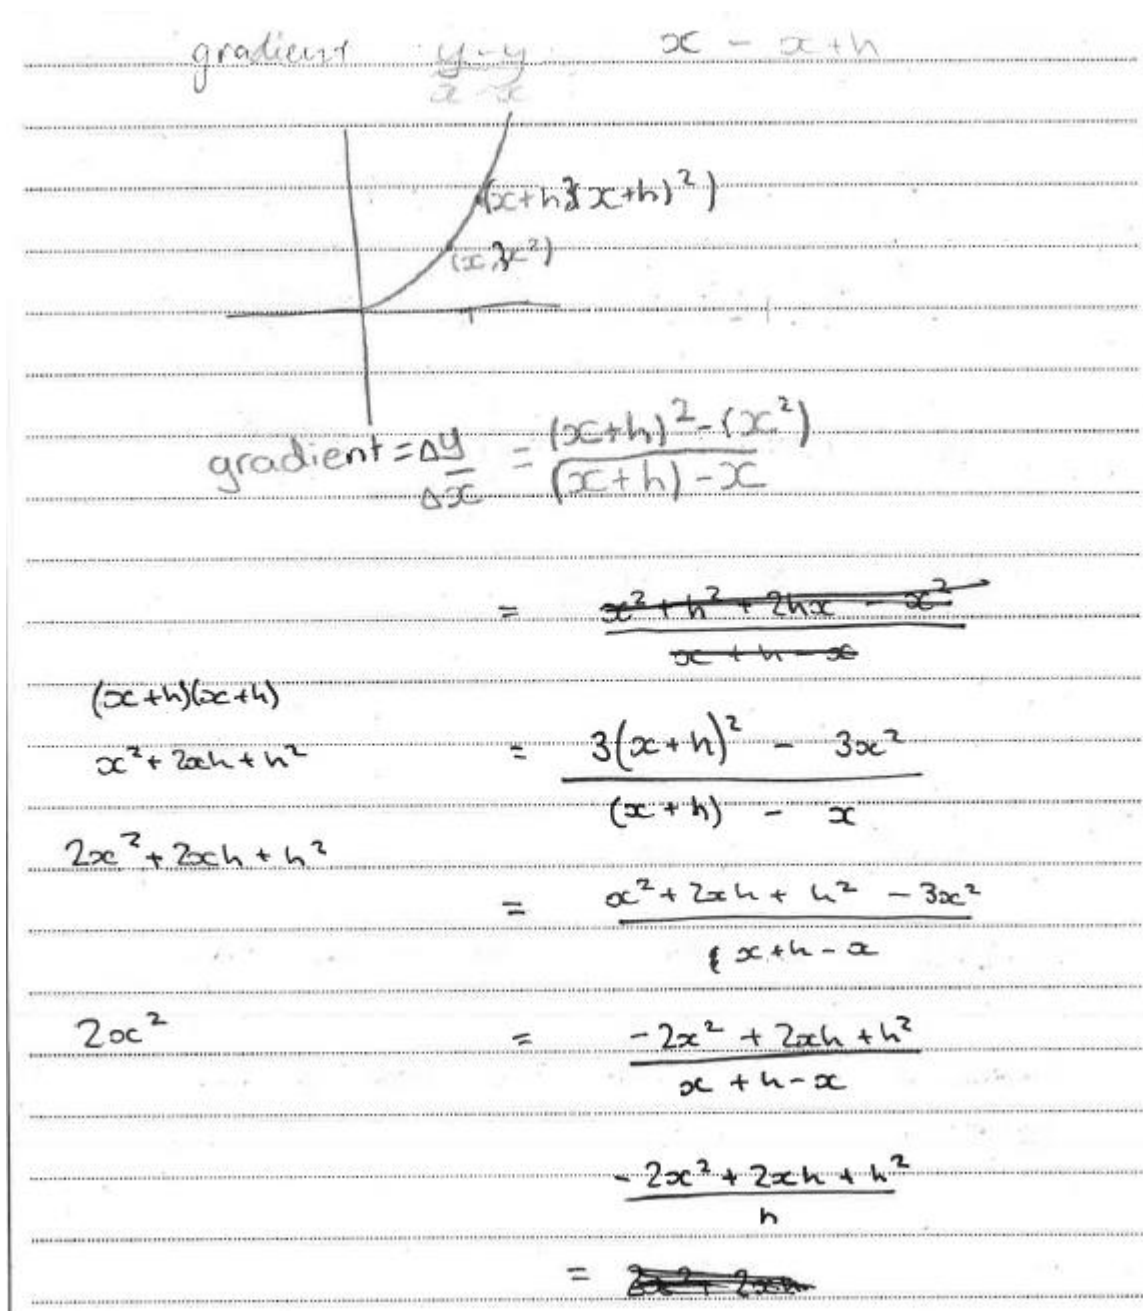 gradient y-y/x-x x - x+h
(x+h, 3(x+h)²)
(x, 3x²)
gradient = Δy/Δx = (x+h)² - (x²)/(x+h) - x
= x² + h² + 2hx - x²/x + h - x
(x+h)(x+h)
x² + 2xh + h² = 3(x+h)² - 3x²/(x+h) - x
2x² + 2xh + h²
= x² + 2xh + h² - 3x²/x+h-x
2x² = -2x² + 2xh + h²/x + h - x
-2x² + 2xh + h²/h
=